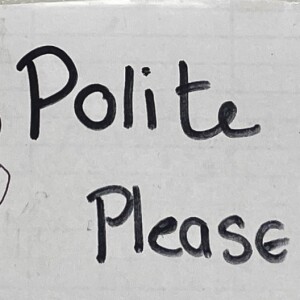 Polite
Please